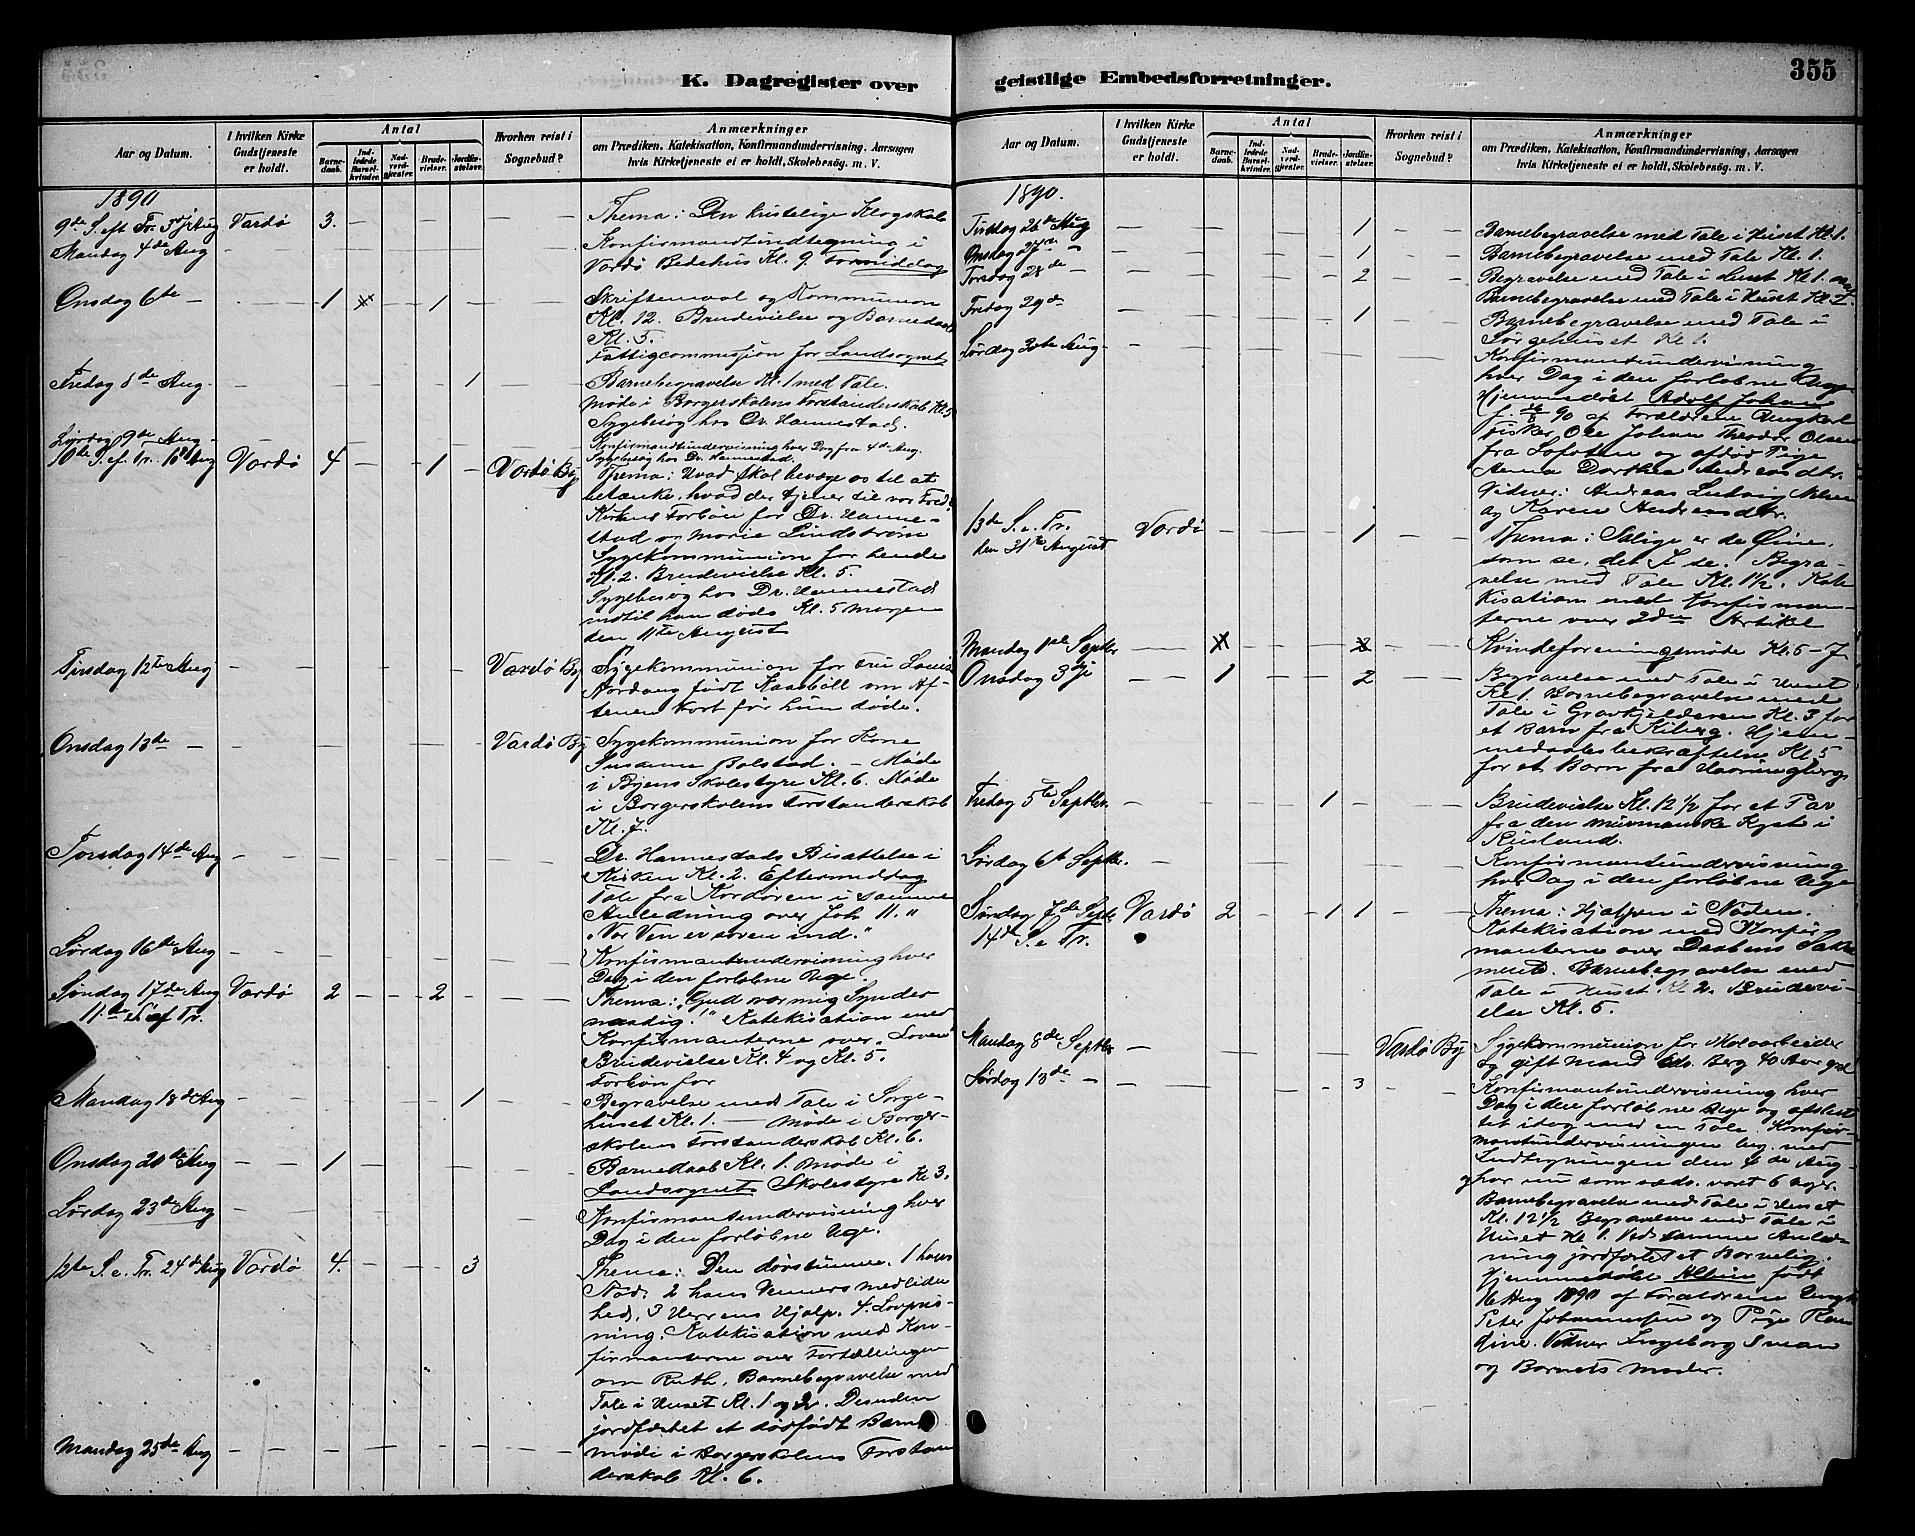 355
K. Dagregister over geistlige Embedsforretninger.
Aar og Datum.
I hvilken Kirke Gudstjeneste er holdt.
Antal
Barnedaab.
Indledede Barselkvinder.
Nadverdgjester.
Brudevielser.
Jordfæstelser.
Hvorhen reist i Sognebud?
Anmærkninger
om Prædiken, Katekisation, Konfirmandundervisning, Aarsagen
hvis Kirketjeneste ei er holdt, Skolebesøg. m. V.
1890
9de S. eft Tr. 3die Aug Vardø 3.
Thema: Den kristelige Klogskab
Mandag 4de Aug
Konfirmandindtegning i
Vardø Bedehus Kl. 9. Formiddag
Onsdag 6te 1 1
Skriftemaal og Kommunion
Kl. 12. Brudevielse og Barnedaab
Kl. 5.
Fattigcommisjon for Landsognet
Fredag 8de Aug. 1
Barnebegravelse Kl. 1 med Tale.
Møde i Borgerskolens Forstanderskab Kl. 5
Sygebesøg hos Dr. Hannestad.
Lørdag 9de Aug
Konfirmandundervisning hver Dag fra 4de Aug.
Sygebesøg hos Dr. Hannestad.
10de S. ef. Tr. 10de Aug Vardø 4 1 Vardø By
Thema: Hvad skal bevæge os til at
betænke, hvad der tjener til vor Fred?
Kirkens Forbøn for Dr. Hanne-
stad og Marie Lindstrøm
Sygekommunion for hende
Kl. 2. Brudevielse Kl. 5.
Sygebesøg hos Dr. Hannestad
indtil han døde Kl. 5 Morgen
den 11te August
Tirsdag 12te Aug Vardø By
Sygekommunion for Fru Louise
født Kaasbøll om Af-
tenen kort før hun døde.
Onsdag 13de Vardø By
Sygekommunion for Kone
Susanne Bolstad. – Møde
i Byens Skolestyre Kl. 6. Møde
i Borgerskolens Forstanderskab
Kl. 7.
Torsdag 14de Aug
Dr. Hannestads Bisættelse i
Kirken Kl. 2. Eftermiddag
Tale fra Kordøren i samme
Anledning over Joh 11. "
"Vor Ven er soven ind."
Lørdag 16de Aug
Konfirmantundervisning hver
Dag i den forløbne Uge.
Søndag 17de Aug Vardø 2 2
11te S. ef Tr.
Thema: "Gud vær mig Synder
naadig!" Katekisation med
Konfirmanterne over "Loven"
Brudevielse Kl. 4 og Kl. 5.
Forbøn for
Mandag 18de Aug 1
Begravelse med Tale i Sørge-
huset Kl. 1. – Møde i Borger-
skolens Forstanderskab Kl. 6.
Onsdag 20de Aug 1
Barnedaab Kl. 1. Møde i
Landsognets Skolestyre Kl 3.
Lørdag 23de Aug
Konfirmantundervisning hver
Dag i den forløbne Uge.
12te S. e. Tr. 24de Aug Vardø 4. 3
Thema: Den døvstumme. 1 hans
Nød. 2 hans Venners Medliden
hed, 3 Herrens Hjælp. 4. Lovpris-
ning. Katekisation med Kon-
firmanterne over Fortællingen
om Ruth. Barnebegravelse med
Tale i Huset Kl. 1 og 2. Desuden
jordfæstet et dødfødt Barn
Mandag 25de Aug
Møde i Borgerskolens Forstan
derskab Kl. 6.
Aar og Datum.
I hvilken Kirke Gudstjeneste er holdt.
Antal
Barnedaab.
Indledede Barselkvinder.
Nadverdgjester.
Brudevielser.
Jordfæstelser.
Hvorhen reist i Sognebud?
Anmærkninger
om Prædiken, Katekisation, Konfirmandundervisning, Aarsagen
hvis Kirketjeneste ei er holdt, Skolebesøg. m. V.
1890.
Tirsdag 26de Aug 1
Barnebegravelse med Tale i Huset Kl. 1.
Onsdag 27de 1
Barnebegravelse med Tale Kl. 1.
Torsdag 28de 2
Begravelse med Tale i Huset Kl 1. og
Barnebegravelse med Tale i Huset Kl 2.
Fredag 29de 1
Barnebegravelse med Tale i
Sørgehuset Kl 1.
Lørdag 30te Aug
Konfirmantundervisning
hver Dag i den forløbne Uge
Hjemmedøbt Adolf Johan
90 af Forældrene Ungkarl
Fisker Ole Johan Theodor Olsen
fra Lofoten og Pige
Anna Dorthea Andreasdtr.
Vidner: Andreas Ludvig Nilsen
og Karen Andreasdtr.
13de S. e. Tr. Vardø 1
den 31te August
Thema: Salige er de Øine,
som se, det I se. Begra-
velse med Tale Kl. 1½. Kate
kisation med Konfirman-
terne over 2den Artikel
Mandag 1ste Septbr
Kvindeforeningsmøde Kl. 5–7
Onsdag 3die 1 2
Begravelse med Tale i Huset
Kl 1. Barnebegravelse med
Tale i Gravkjelderen Kl. 3 for
et Barn fra Kiberg. Hjem-
medaabsbekræftelse Kl. 5
for et Barn fra Havningberg
Fredag 5te Septbr. 1
Brudevielse Kl. 12½ for et Par
fra den murmanske Kyst i
Rusland.
Lørdag 6te Septbr.
Konfirmantundervisning
hver Dag i den forløbne Uge
Søndag 7de Septb Vardø 2 1 1
14de S. e Tr.
Thema: Hjælpen i Nøden.
Katekisation med Konfir
manterne over Daabens Sakra
mente. Barnebegravelse med
Tale i Huset. Kl 2. Brudevi-
else Kl. 5.
Mandag 8de Septbr Vardø By
Sygekommunion for Moloarbeider
og gift Mand Edv. Berg 40 Aar gml
Lørdag 13de 3
Konfirmantundervisning hver
Dag i den forløbne Uge og afslut
tet idag med en Tale. Konfir-
mantundervisningen beg. med
Indtegningen den 4de Aug
og har nu som sæds. varet 6 Uger.
Barnebegravelse med Tale i Huset
Kl. 12½ Begravelse med Tale i
Huset Kl 1. Ved samme Anled-
ning jordfæstet et Barnelig.
Hjemmedøbt født
16 Aug 1890 af Forældrene Ungk.
Peter Johannesen og Pige
Vidner Ingeborg
og Barnets Moder.